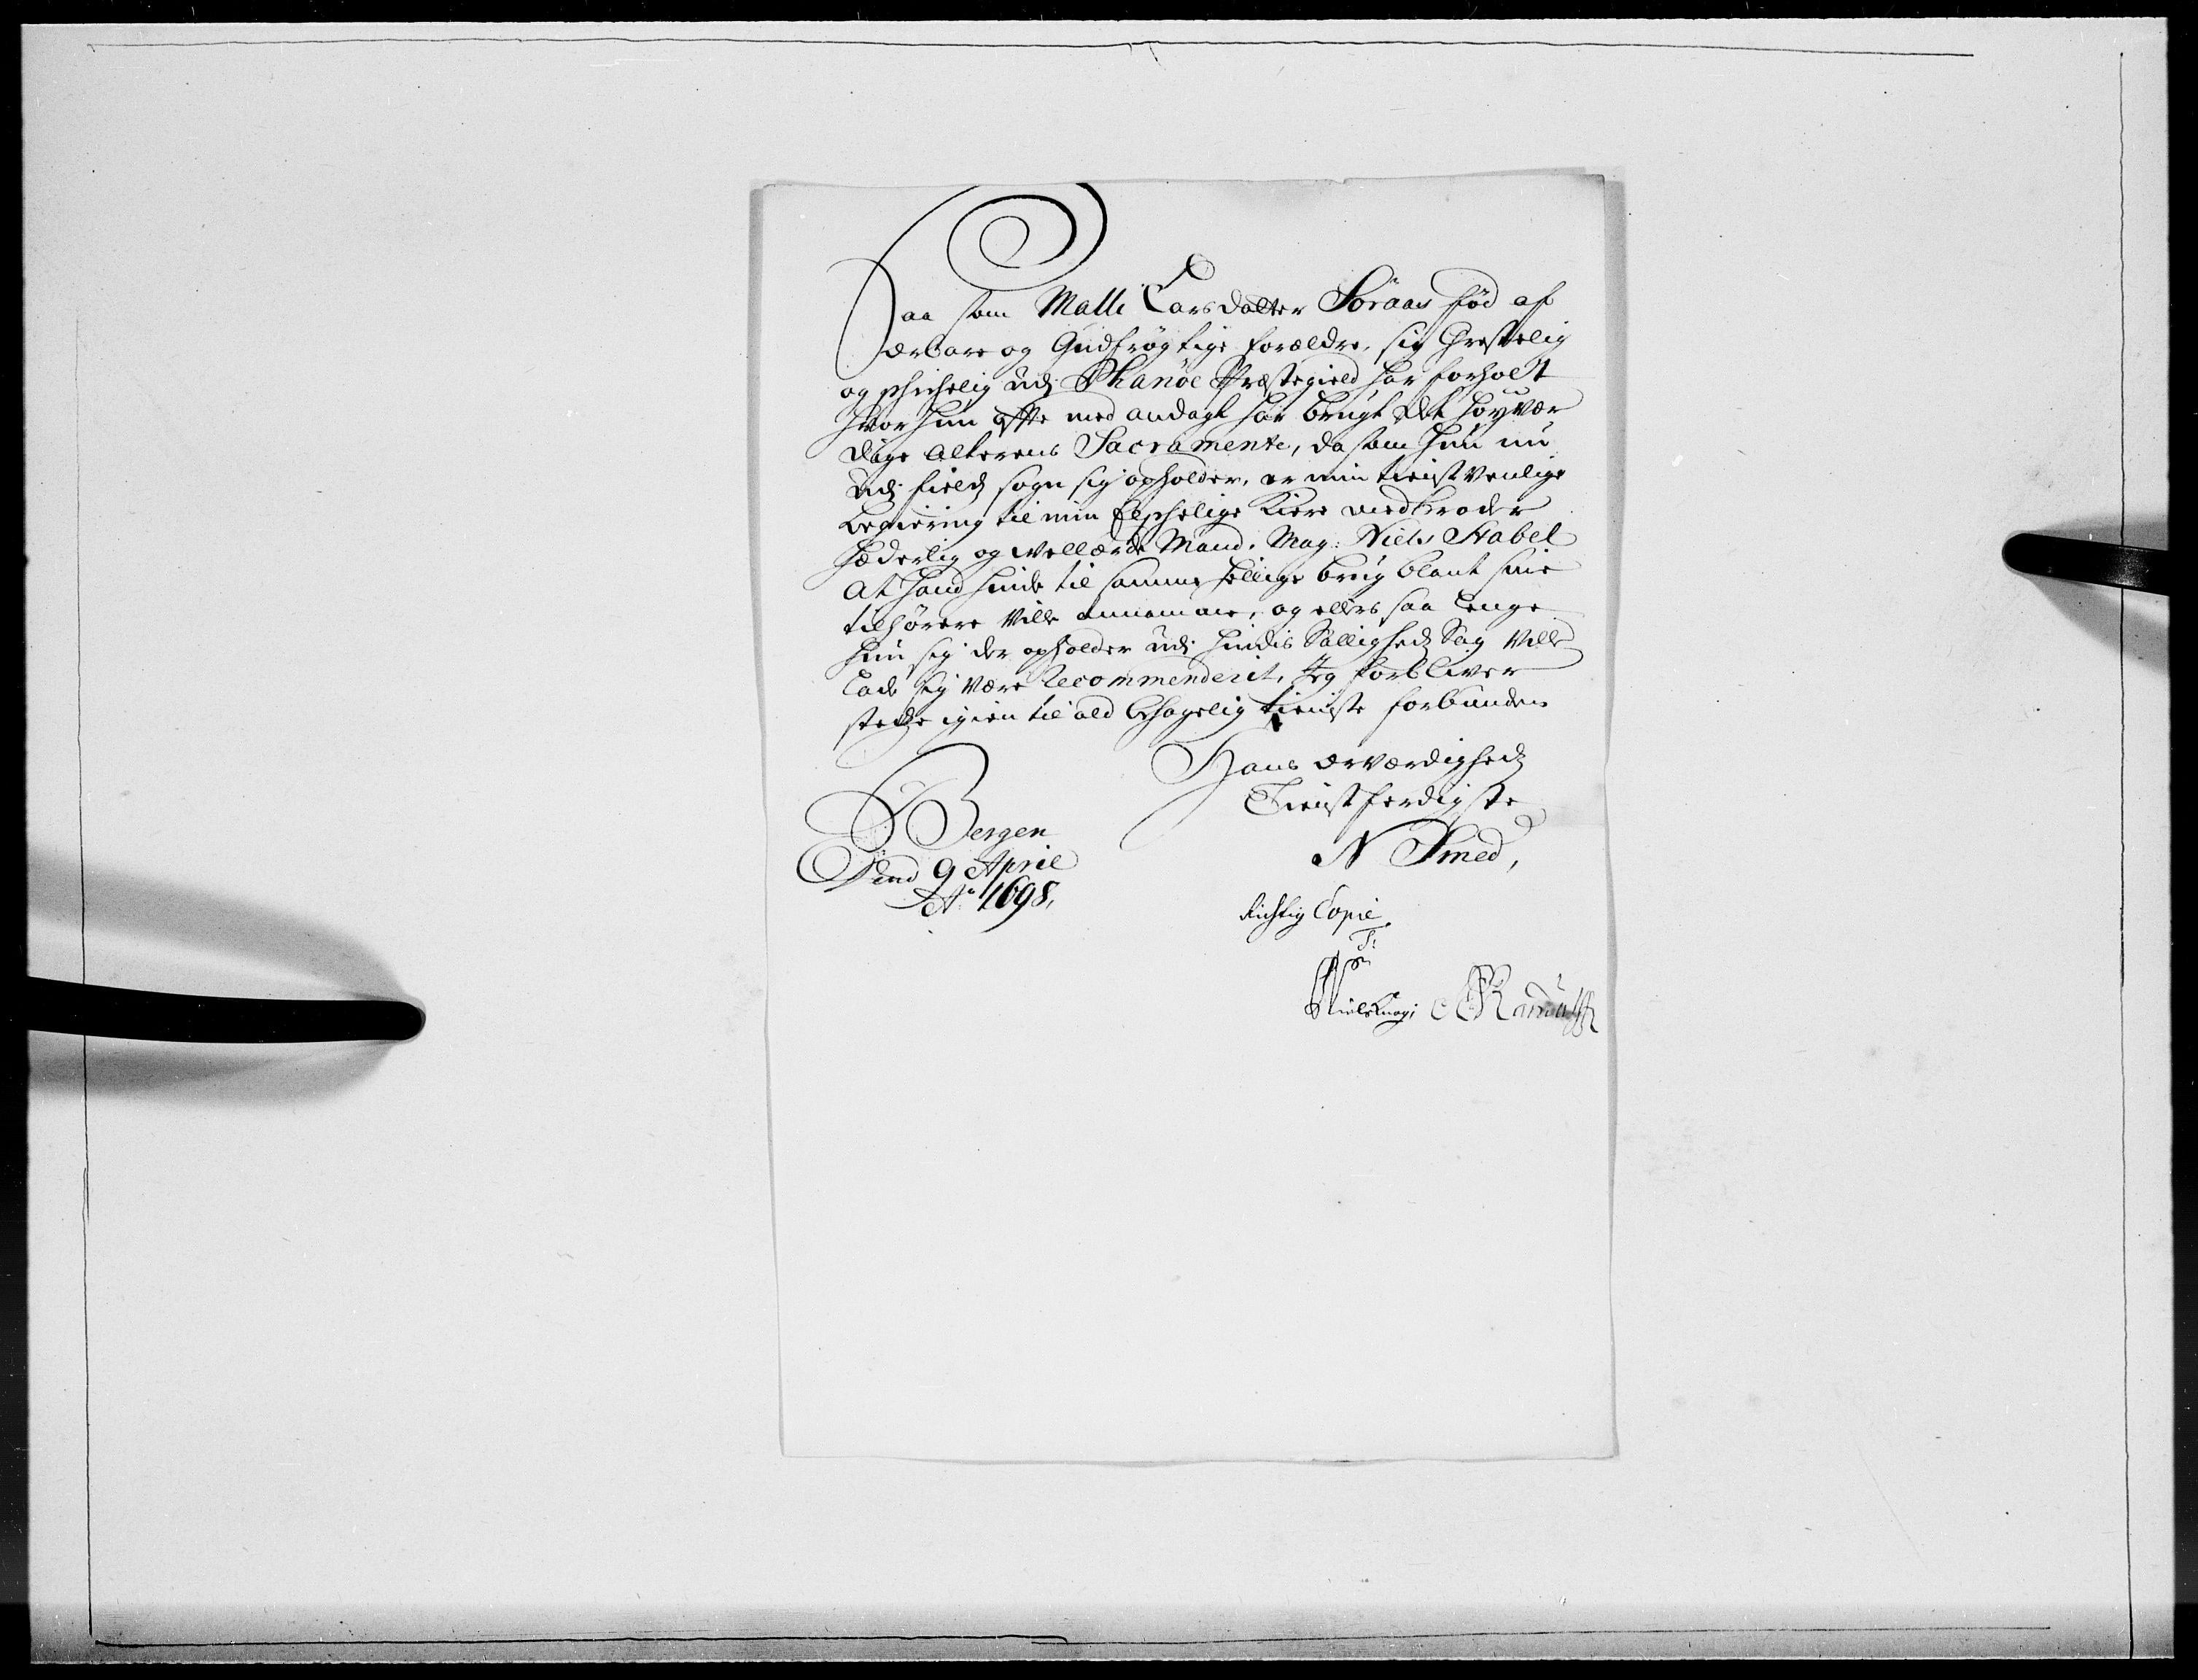 Saa som Malli Larsdatter Söraas fød af
ærbare og Gudfrögtige forældre, sig Christelig
og skichelig udj Phanöe Præstegield har forholt
hvor hun offte med andagt har brugt det höyvær
dige Alterens Sacramente, da som hun nu
udj field sogn sig opholder, er min tienstvenlige
begiering til min Elschelige Kiere medbroder
hæderlig og wellærde Mand, Mag: Niels Stabel
At hand hinde til samme hellige brug blant sine
tilhörere ville annamme, og ellers saa lenge
hun sig der opholder udj hindis Sallighedz Sag ville
lade sig være Recommenderit, Jeg forbliver
stedze igien til ald behagelig tieniste forbunden
Hans ærværdighedz
Tienstferdigste
N Smed,
Bergen
Dend 9 Aprile
Ao 1698,
Richtig Copie
T:
Niels Knag: Randulff